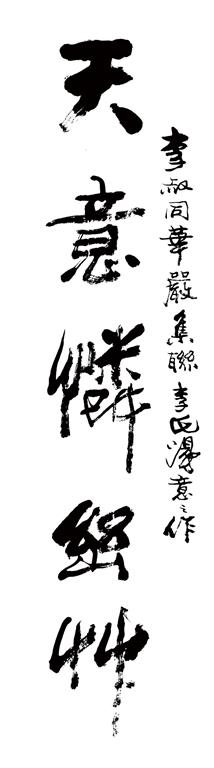 李叔同華嚴集聯李氏得意之作
天意憐幽艸